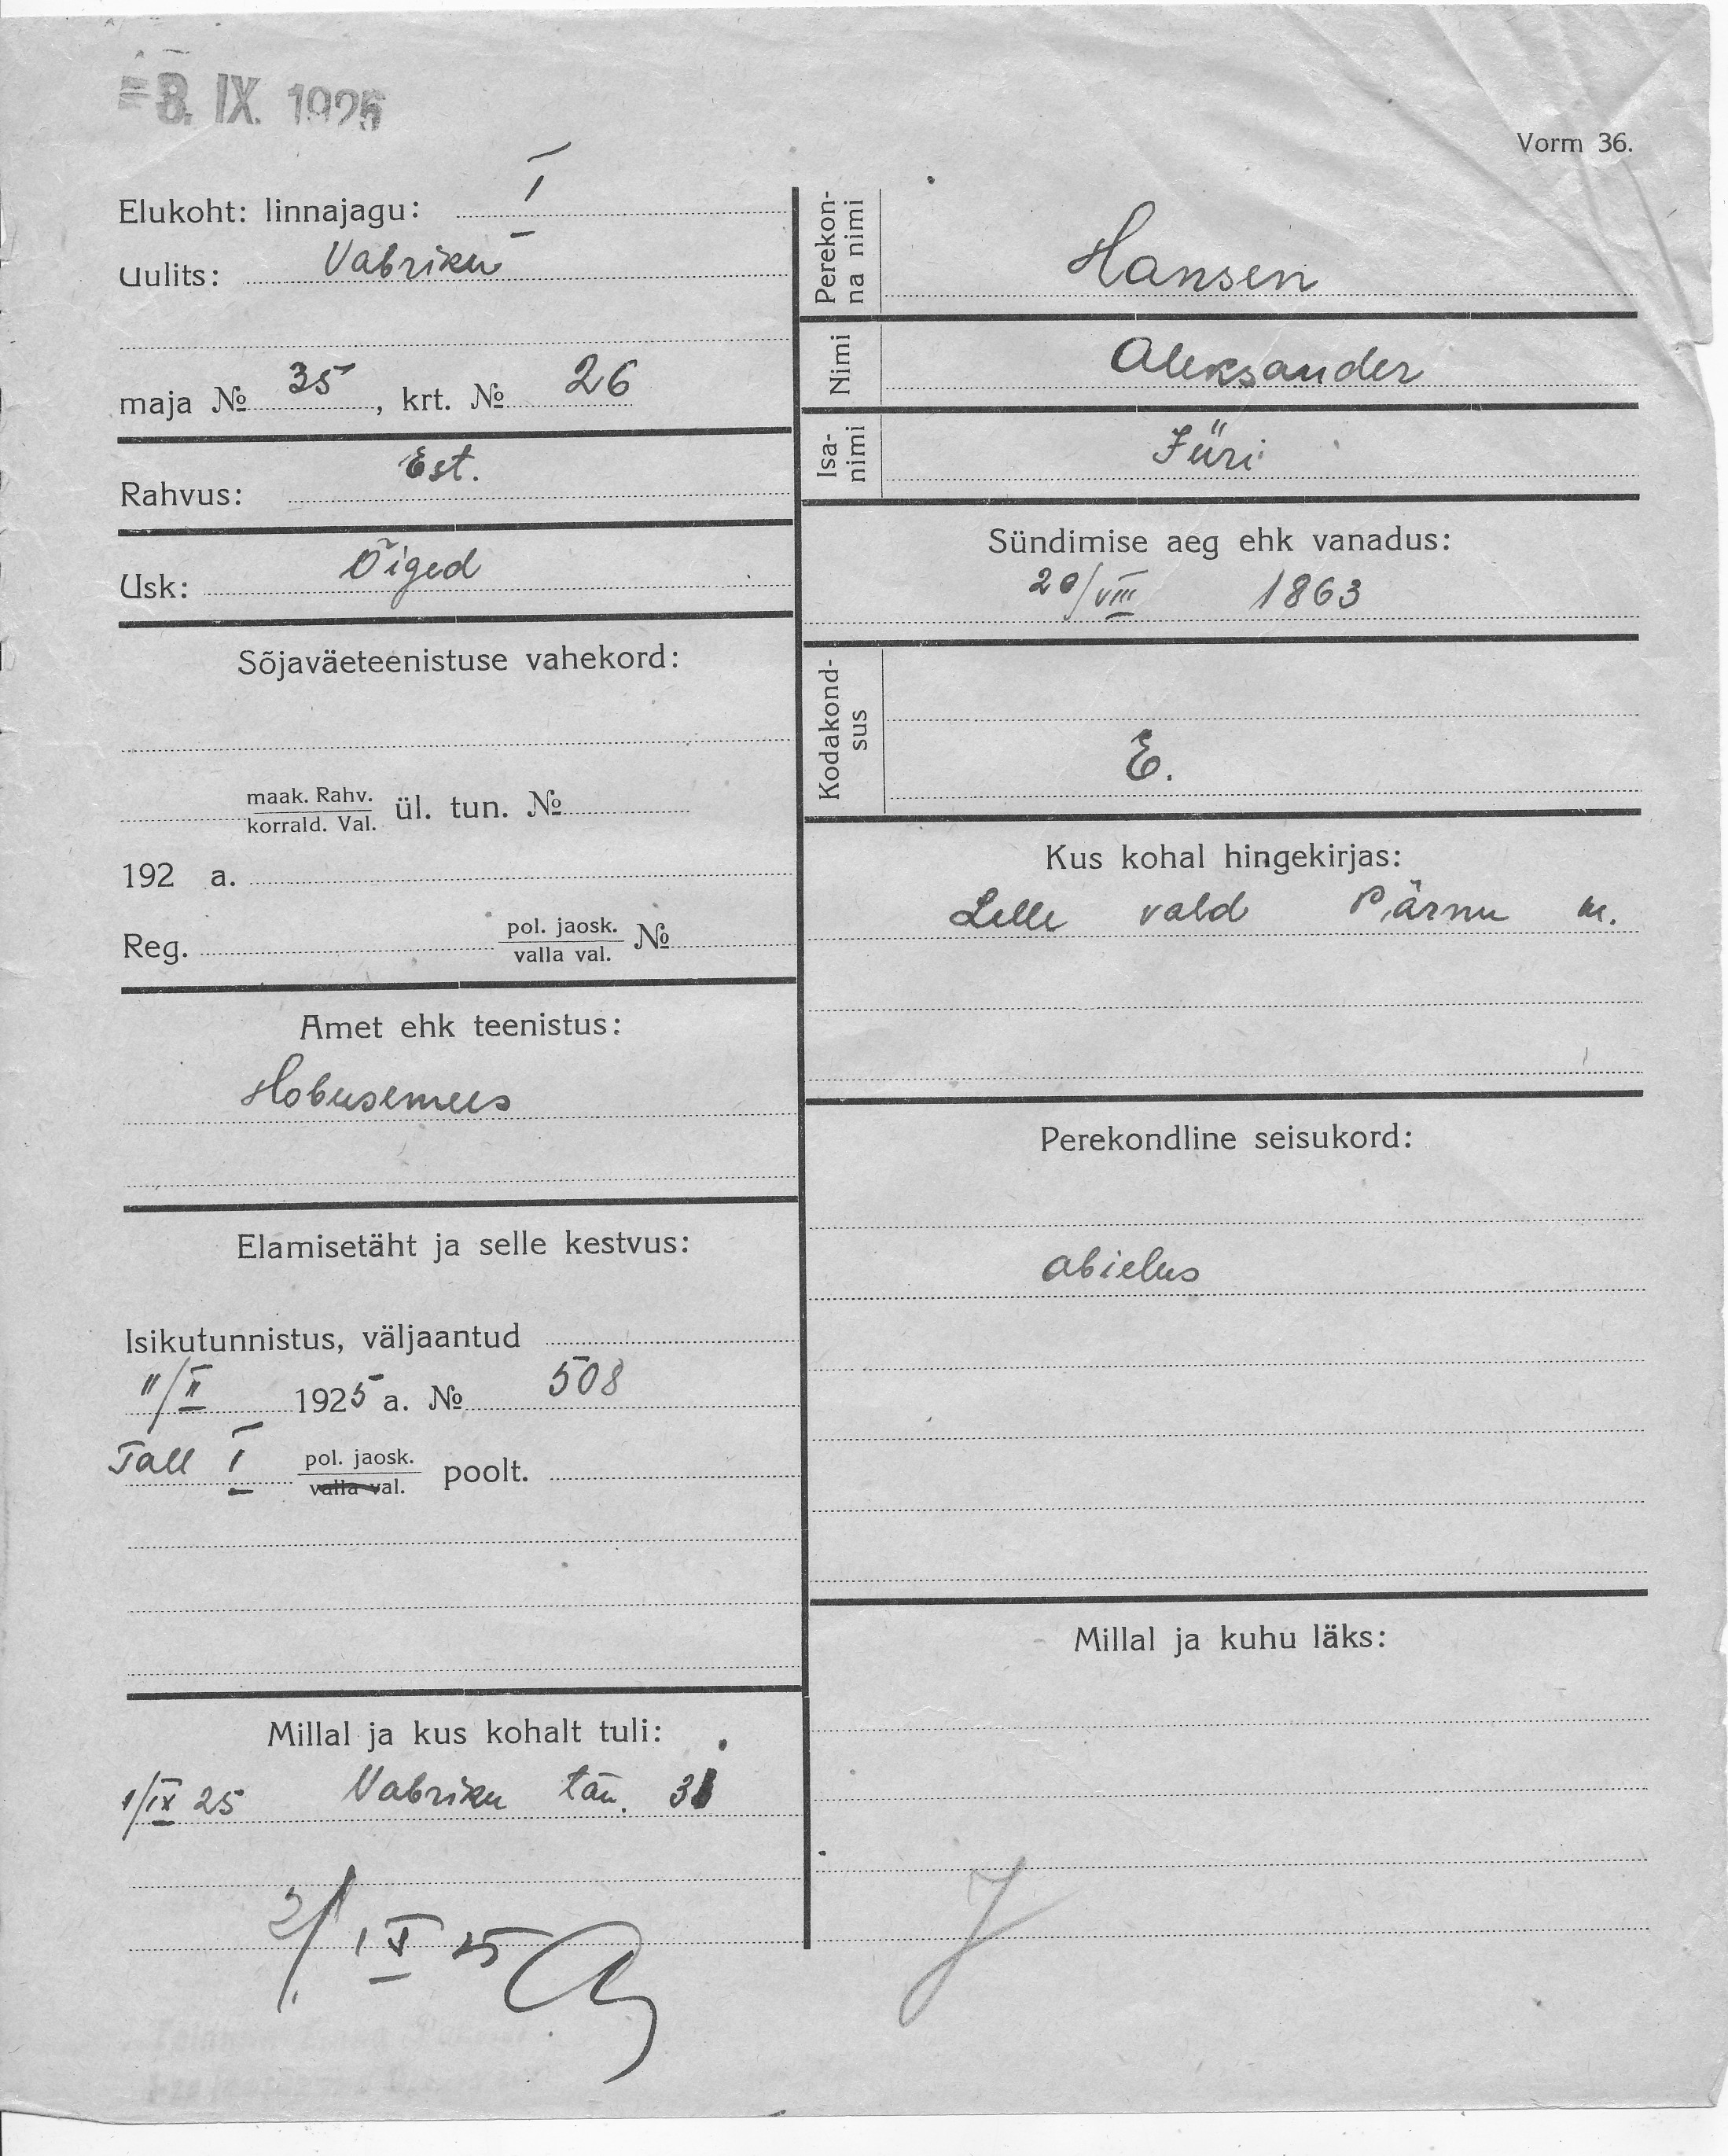 8. IX. 1925
Vorm 36.
Elukoht: linnajagu: I
Uulits: Vabriku
maja № 35, krt. № 26
Rahvus: Est.
Usk: Õiged
Sõjaväeteenistuse vahekord:
maak. Rahv.
korrald. Val. ül. tun. №
192 a.
Reg. pol. jaosk.
valla val. №
Amet ehk teenistus:
Hobusemees
Elamisetäht ja selle kestvus:
Isikutunnistus, väljaantud
11/II 1925 a. № 508
Tall I pol. jaosk.
valla val. poolt.
Millal ja kus kohalt tuli:
1/IX 25 Vabriku tän.
Perekon-
na nimi
Hansen
Nimi
Aleksander
Isa-
nimi
Jüri
Sündimise aeg ehk vanadus:
20/VIII 1863
Kodakond-
sus
E.
Kus kohal hingekirjas:
Lelle vald Pärnu m.
Perekondline seisukord:
abielus
Millal ja kuhu läks: